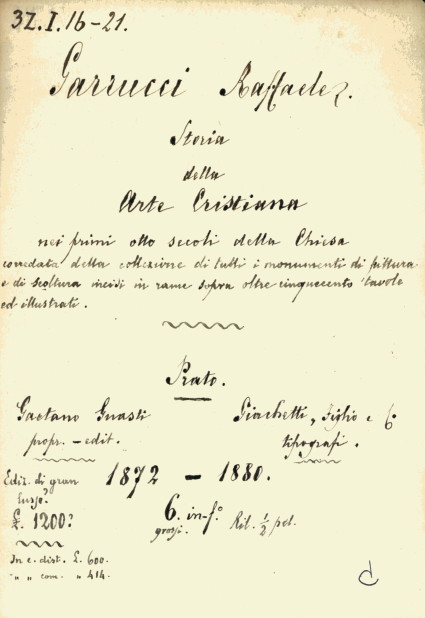 3Z.I.16-21.
Garrucci Raffaele.
Storia
della
Arte Cristiana
nei primi otto secoli della Chiesa
corredata della collezione di tutti i monumenti di pittura
e di scoltura incisi in rame sopra oltre cinquecento tavole
ed illustrati.
Prato.
Gaetano Guasti
propr. - edit.
Giachetti, Figlio e C.
tipografi.
Ediz. di gran
lusso.
1872 - 1880.
£. 1200?
6. in-fº
grossi.
Ril. ½ pel.
In c. dist. £. 600.
" " com. " 414.